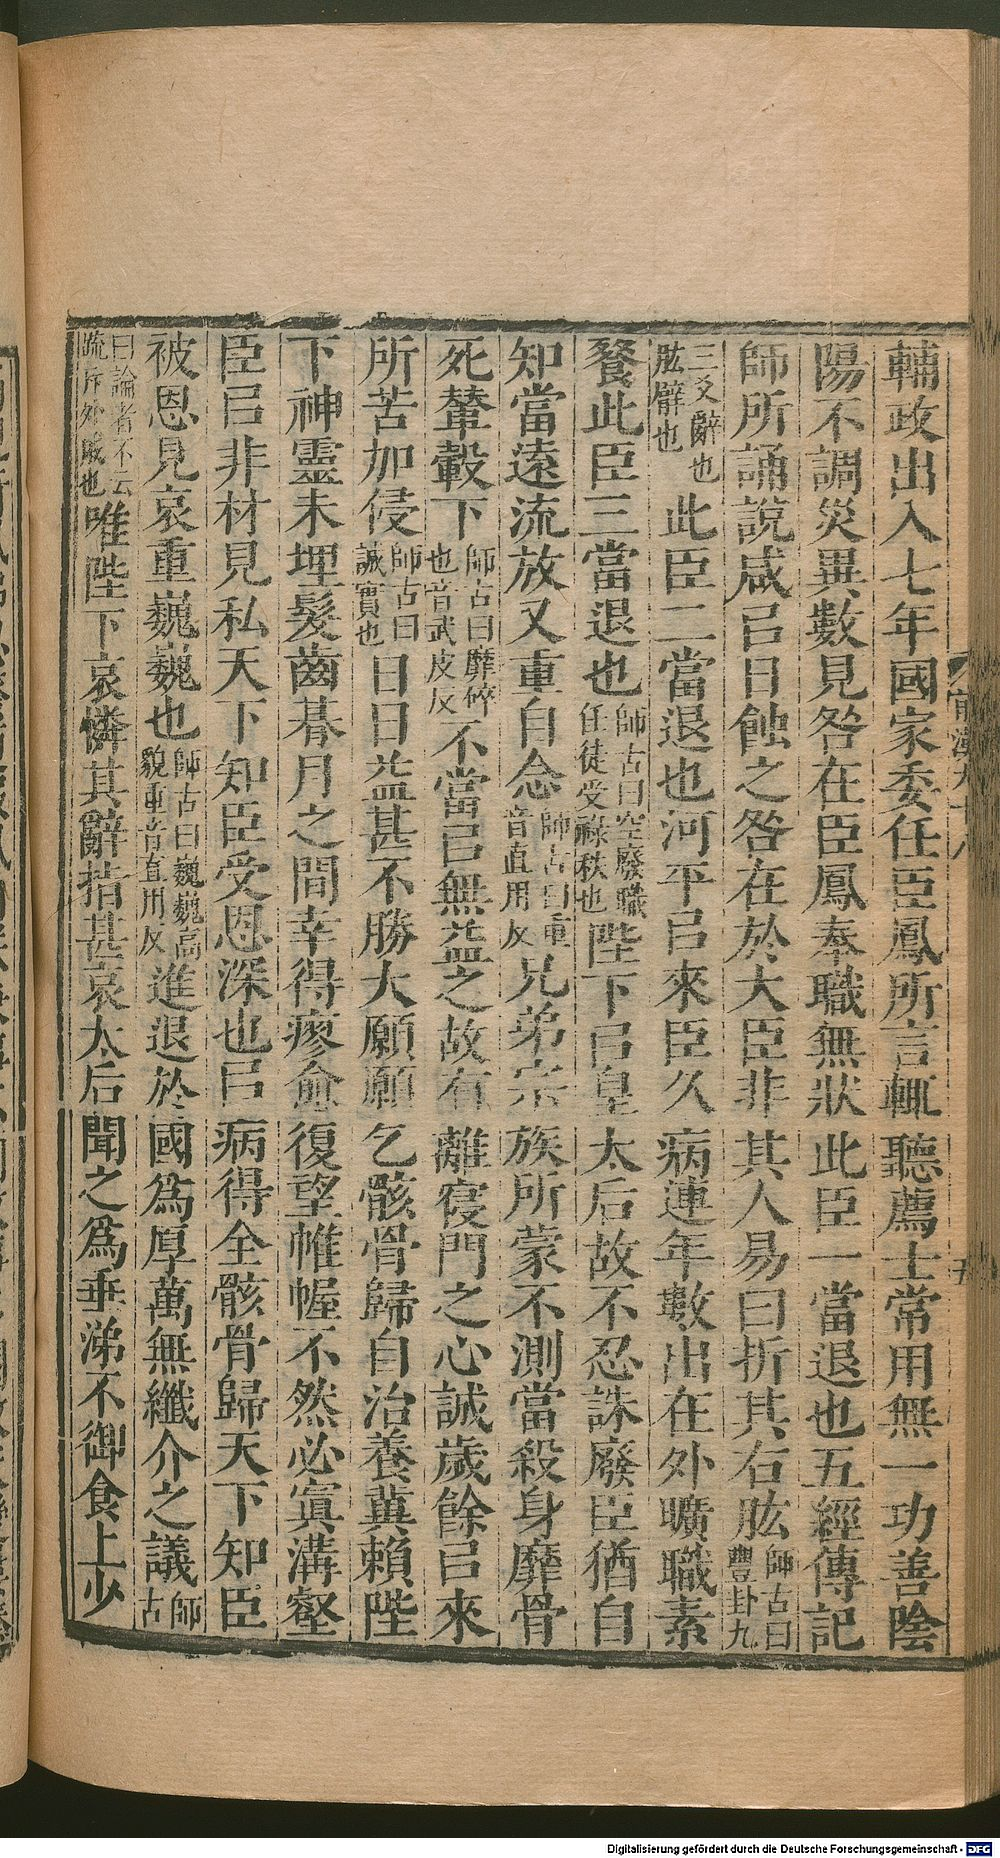 輔政出入七年國家委任臣鳳所言輒聽薦士常用無一功善陰
陽不調災異數見咎在臣鳳奉職無狀此臣一當退也五經傳記
師所誦說咸㠯日蝕之咎在於大臣非其人易曰折其右肱師古曰豐卦九
三爻辭也肱臂也此臣二當退也河平㠯來臣久病連年數出在外曠職素
餐此臣三當退也師古曰空廢職任徒受祿秩也陛下㠯皇太后故不忍誅廢臣猶自
知當遠流放又重自念師古曰重音直用反兄弟宗族所蒙不測當殺身靡骨
死輦轂下師古曰靡碎也音武皮反不當㠯無益之故有離寑門之心誠歲餘㠯來
所苦加侵師古曰誠實也日日益甚不勝大願願乞骸骨歸自治養冀賴陛
下神靈未埋髮齒朞月之間幸得瘳愈復望帷幄不然必寘溝壑
臣㠯非材見私天下知臣受恩深也㠯病得全骸骨歸天下知臣
被恩見哀重巍巍也師古曰巍巍高貌重音直用反進退於國爲厚萬無纖介之議師古
曰論者不云疏斥外戚也唯陛下哀憐其辭指甚哀太后聞之爲垂涕不御食上少
前漢九十八
五
Digitalisierung gefördert durch die Deutsche Forschungsgemeinschaft - DFG